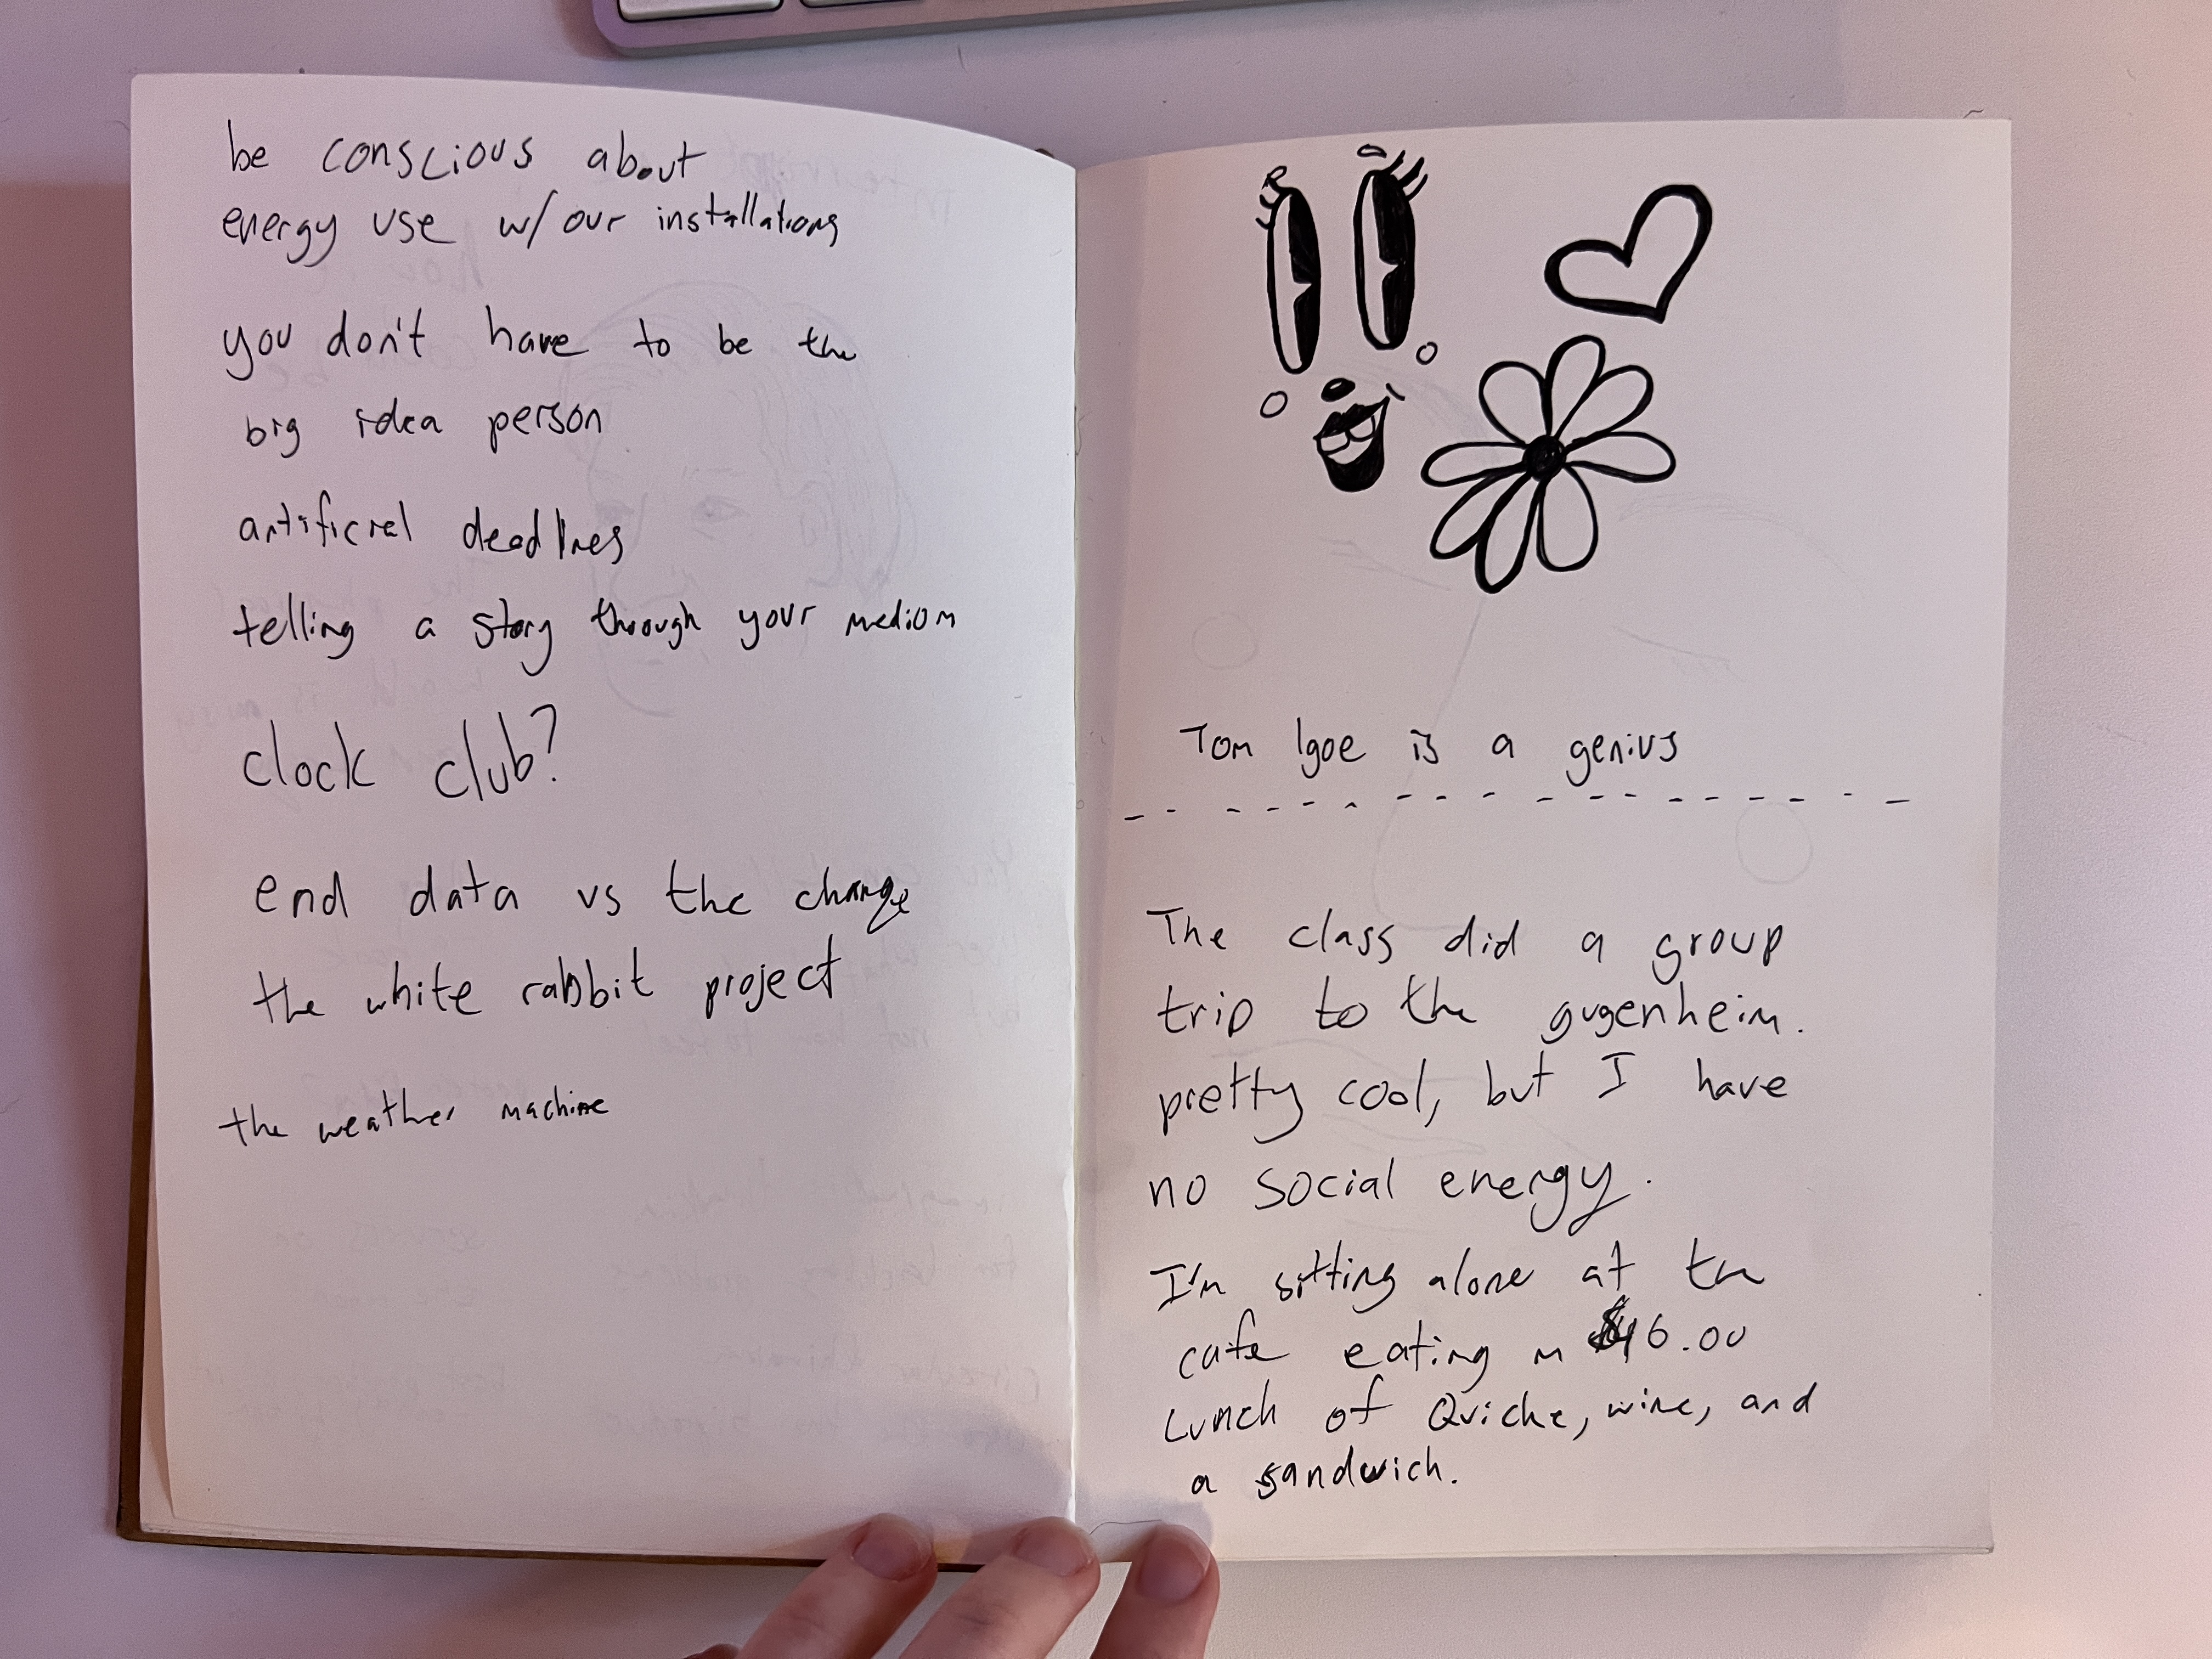 be conscious about
energy use w/ our installations
you don't have to be the
big idea person
artificial deadlines
telling a story through your medium
clock club?
end data vs the change
the white rabbit project
the weather machine
Tom Igoe is a genius
The class did a group
trip to the gugenheim.
pretty cool, but I have
no social energy.
I'm sitting alone at the
cafe eating $46.00
Lunch of Quiche, wine, and
a sandwich.